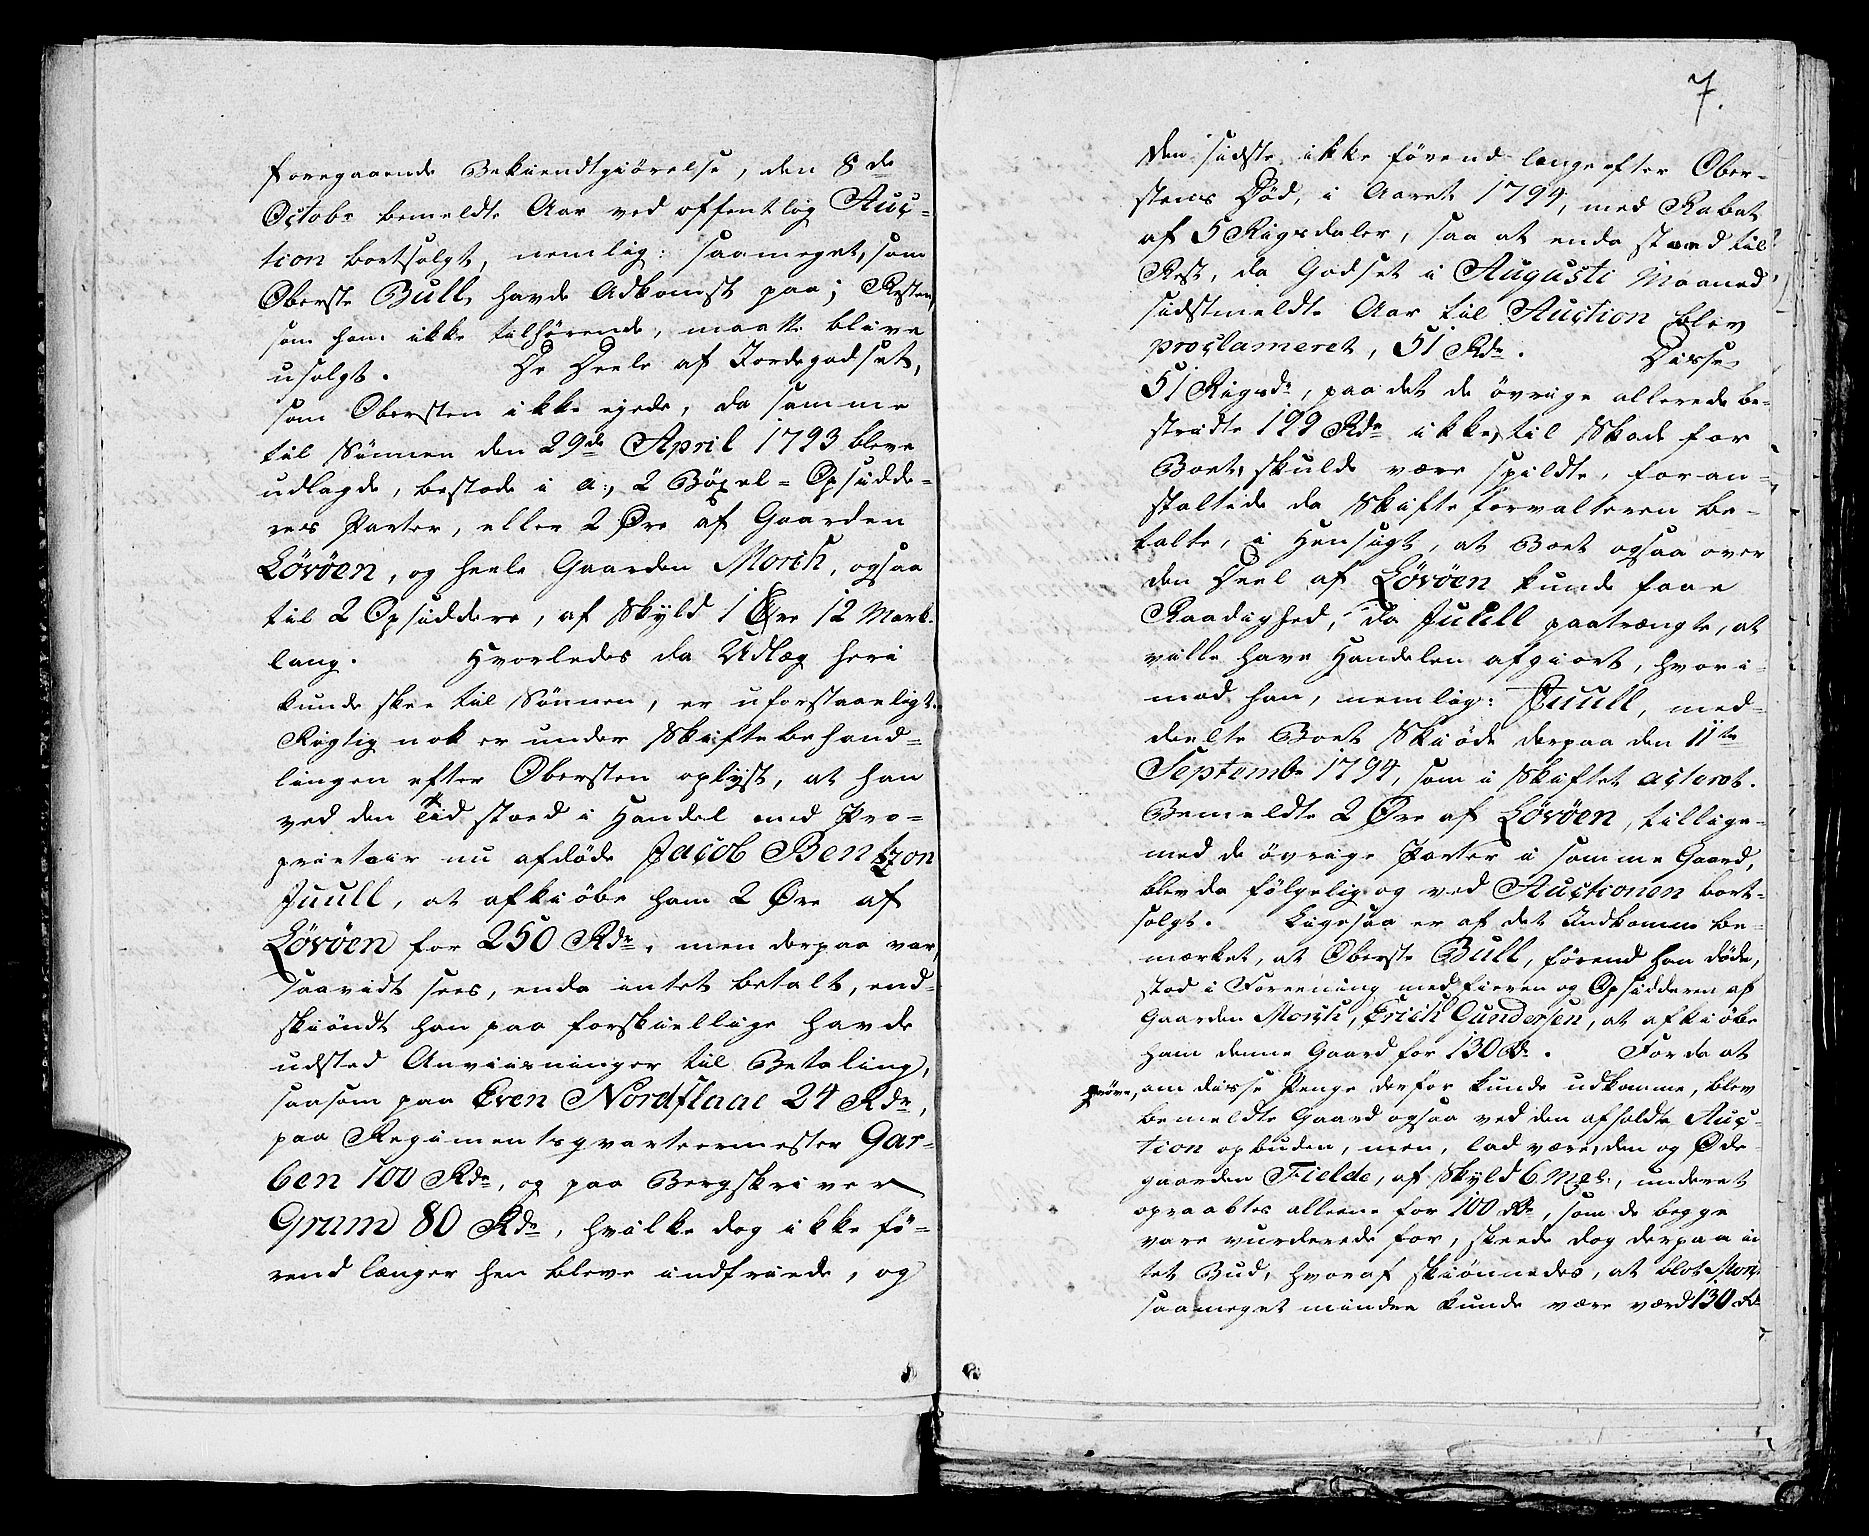 foregaaende Bekiendtgiörelse, den 8de
Octobr bemeldte Aar ved offentlig Auc=
tion bortsolgt, nemlig: saameget, som
Oberste Bull havde Adkomst paa; Resten,
som ham ikke tilhörende, maatte blive
usolgt. De Deele af Jordegodset,
som Obersten ikke eyede, da samme
til Sönnen den 29de April 1793 bleve
udlagde, bestode i a., 2 Böxel=Opsidde=
res Parter, eller 2 Øre af Gaarden
Lövöen, og heele Gaarden Morch, ogsaa
til 2 Opsiddere, af Skyld 1 Øre 12 Mark=
laug. Hvorledes da Udlæg heri
kunde skee til Sönnen, er uforstaaeligt.
Rigtig nok er under Skiftebehand=
lingen efter Obersten oplyst, at han
ved den Tid stoed i Handel med Pro=
prietair nu afdöde Jacob Bentzon
Juull, at afkiöbe ham 2 Øre af
Lövöen for 250 Rdr, men derpaa var,
saavidt sees, endo intet betalt, end=
skiöndt han paa forskiellige havde
udsted Anviisninger til Betaling,
saasom paa Even Nordflaae 24 Rdr,
paa Regimentsqvarteermester Gar=
ben 100 Rdr, og paa Bergskriver
Grum 80 Rdr, hvilke dog ikke fö=
rend længer hen bleve indfriede, og
7.
den sidste ikke förend længe efter Ober=
stens Död, i Aaret 1794, med Rabat
af 5 Rigsdaler, saa at endo stoed til
Rest, da Godset i Augusti Maaned
sidstmeldte Aar til Auction blev
proclameret, 51 Rdr. Disse
51 Rigsdr, paa det de övrige allerede be=
stridte 199 Rdr ikke, til Skade for
Boet, skulde være spildte, foran=
staltede da Skifteforvalteren be=
talte, i Hensigt, at Boet ogsaa over
den Deel af Lövöen kunde faae
Raadighed, da Juull paatrængte, at
ville have Handelen afgiort, hvori=
mod han, nemlig: Juull, med=
deelte Boet Skiöde derpaa den 11te
Septembr 1794, som i Skiftet acteret.
Bemeldte 2 Øre af Lövöen, tillige=
med de övrige Parter i samme Gaard,
blev da fölgelig og ved Auctionen bort=
solgt. Ligesaa er af det Indkomne be=
mærket, at Oberste Bull, förend han döde,
stod i Foreening med Eieren og Opsidderen af
Gaarden Morch, Erich Gundersen, at afkiöbe
ham denne Gaard for 130 Rdr. For da at
pröve, om disse Penge derfor kunde udkomme, blev
bemeldte Gaard ogsaa ved den afholdte Auc=
tion opbuden, men, lad være, den og Øde=
gaarden Fielde, af Skyld 6 Mel., underet
opraabtes alleene for 100 Rdr, som de begge
vare vurderede for, skeede dog derpaa in=
tet Bud, hvoraf skiönnedes, at blot Morch
saameget mindre kunde være værd 130 Rdr